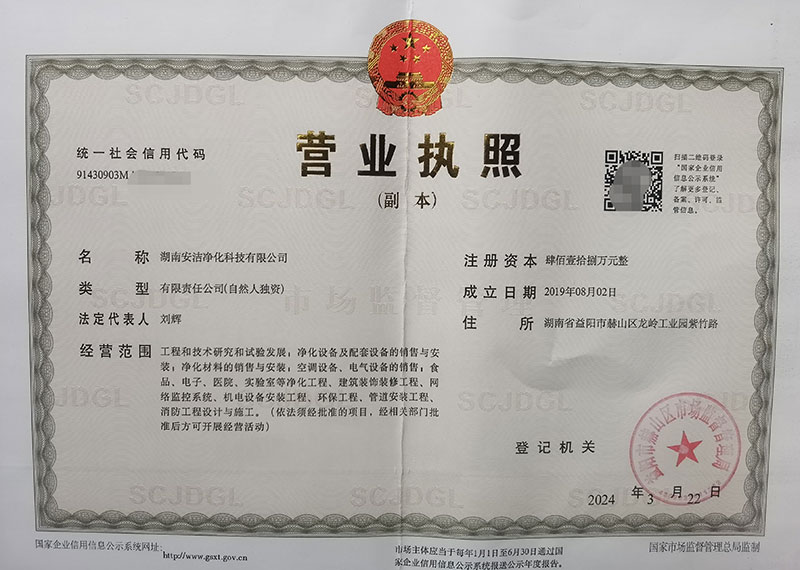 营业执照
(副 本)
统一社会信用代码
91430903M
扫描二维码登录
"国家企业信用
信息公示系统"
了解更多登记、
备案、许可、监
管信息。
名 称 湖南安洁净化科技有限公司
类 型 有限责任公司(自然人独资)
法定代表人 刘辉
经营范围 工程和技术研究和试验发展;净化设备及配套设备的销售与安
装;净化材料的销售与安装;空调设备、电气设备的销售;食
品、电子、医院、实验室等净化工程、建筑装饰装修工程、网
络监控系统、机电设备安装工程、环保工程、管道安装工程、
消防工程设计与施工。(依法须经批准的项目,经相关部门批
准后方可开展经营活动)
注册资本 肆佰壹拾捌万元整
成立日期 2019年08月02日
住 所 湖南省益阳市赫山区龙岭工业园紫竹路
登记机关
益阳市赫山区市场监督管理局
2024 年 3 月 22 日
SCJDGL
SCJDGL
SCJDGL
SCJDGL
市场监督管理
SCJDGL
SCJDGL
SCJDGL
国家企业信用信息公示系统网址:
http://www.gsxt.gov.cn
市场主体应当于每年1月1日至6月30日通过国
家企业信用信息公示系统报送公示年度报告。
国家市场监督管理总局监制